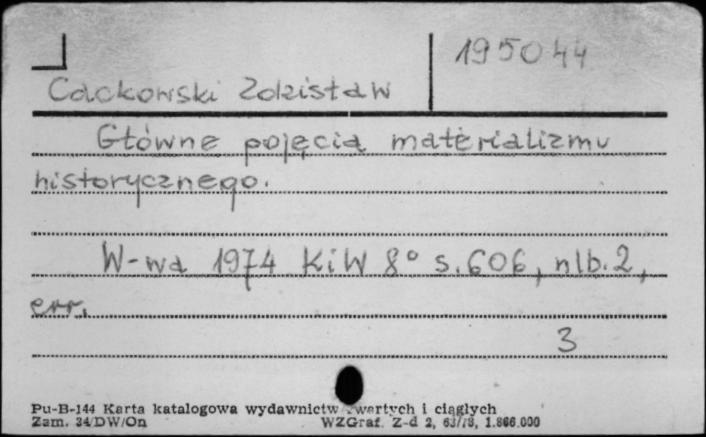 195044
Cackowski Zdzisław
Główne pojęcia materializmu
historycznego.
W-wa 1974 KiW 8° s.606, nlb.2,
err.
3
Pu-B-144 Karta katalogowa wydawnictw zwartych i ciągłych
Zam. 34/DW/On WZGraf. Z-d 2, 63/73, 1.866.000